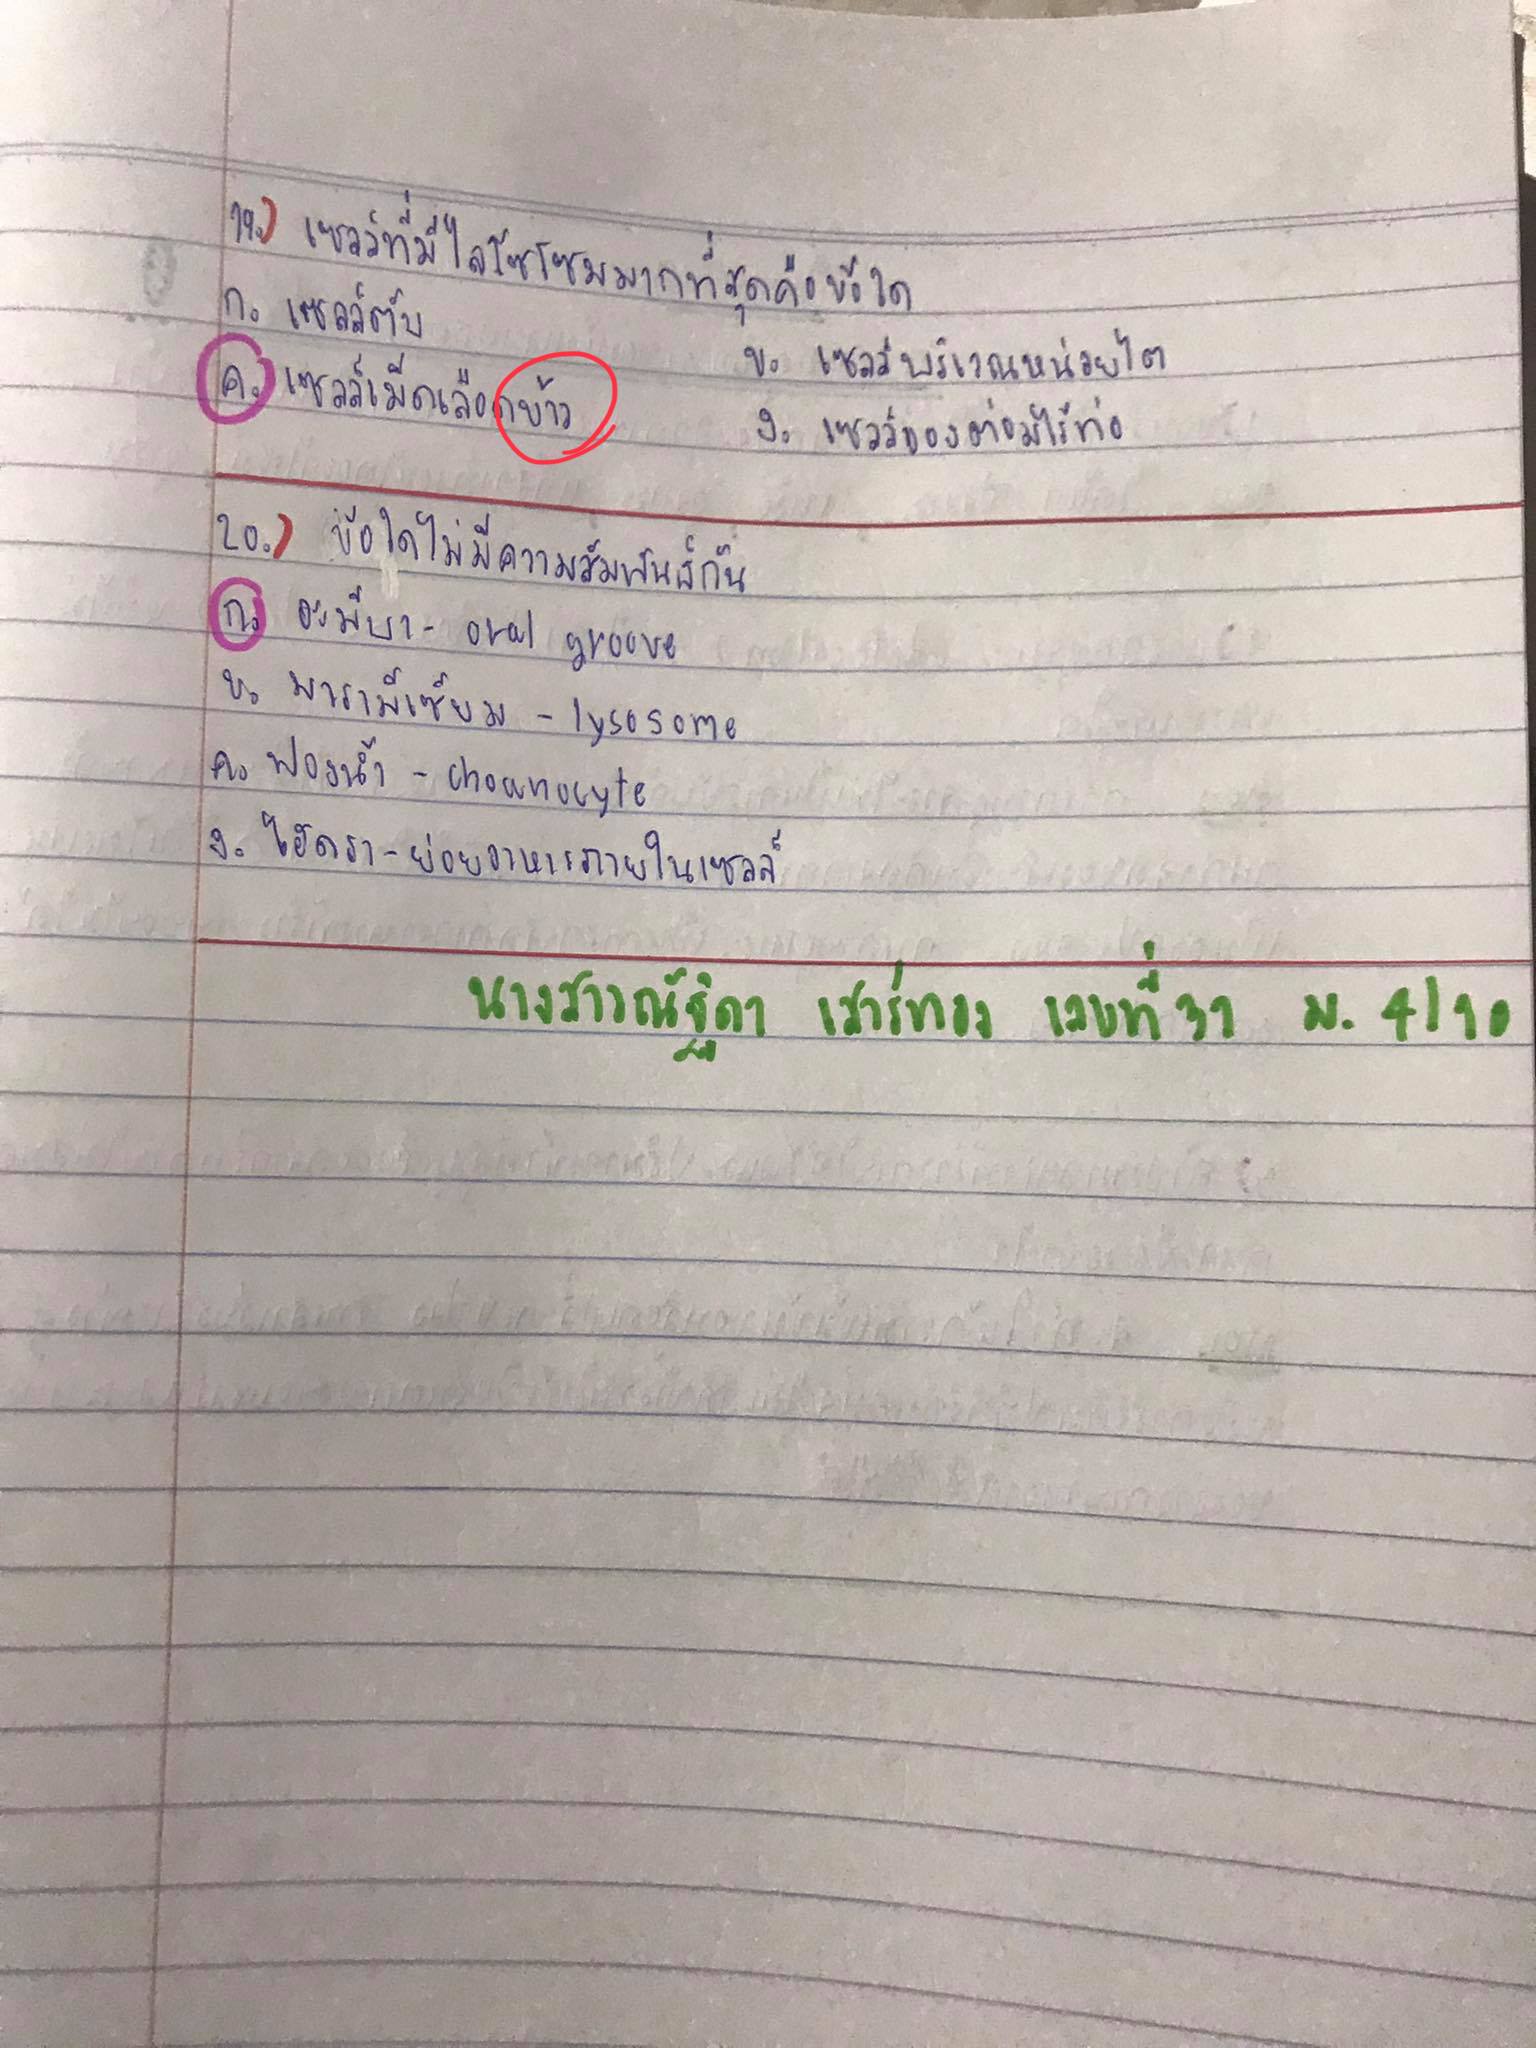 19.) เซลล์ที่มีไลโซโซมมากที่สุดคือข้อใด
ก. เซลล์ตับ
ข. เซลล์บริเวณหน่วยไต
ค. เซลล์เม็ดเลือดข้าว
ง. เซลล์ของต่อมไร้ท่อ
20.) ข้อใดไม่มีความสัมพันธ์กัน
ก. อะมีบา - oral groove
ข. พารามีเซียม - lysosome
ค. ฟองน้ำ - choanocyte
ง. ไฮดรา - ย่อยอาหารภายในเซลล์
นางสาวณัฐิดา เสาร์ทอง เลขที่ 31 ม. 4/10